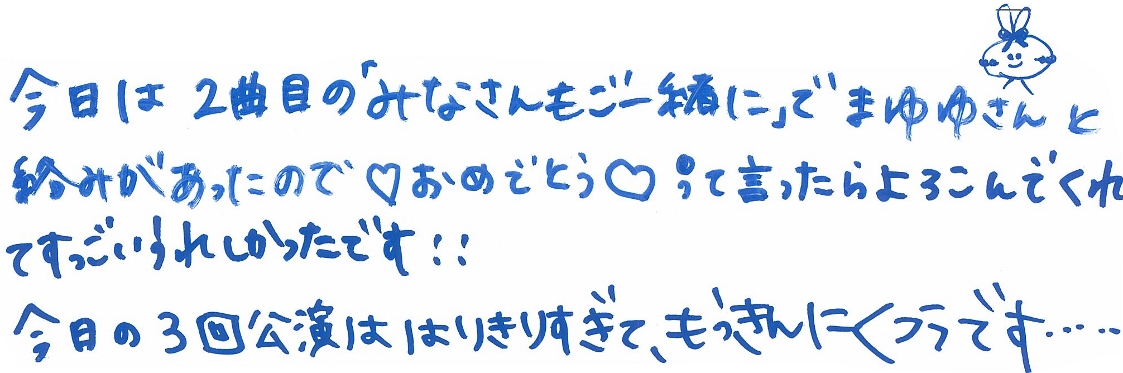 今日は2曲目の「みなさんもご一緒に」でまゆゆさんと
絡みがあったので♡おめでとう♡って言ったらよろこんでくれ
てすっごいうれしかったです!!
今日の3回公演ははりきりすぎて、もうきんにくつうです‥‥‥